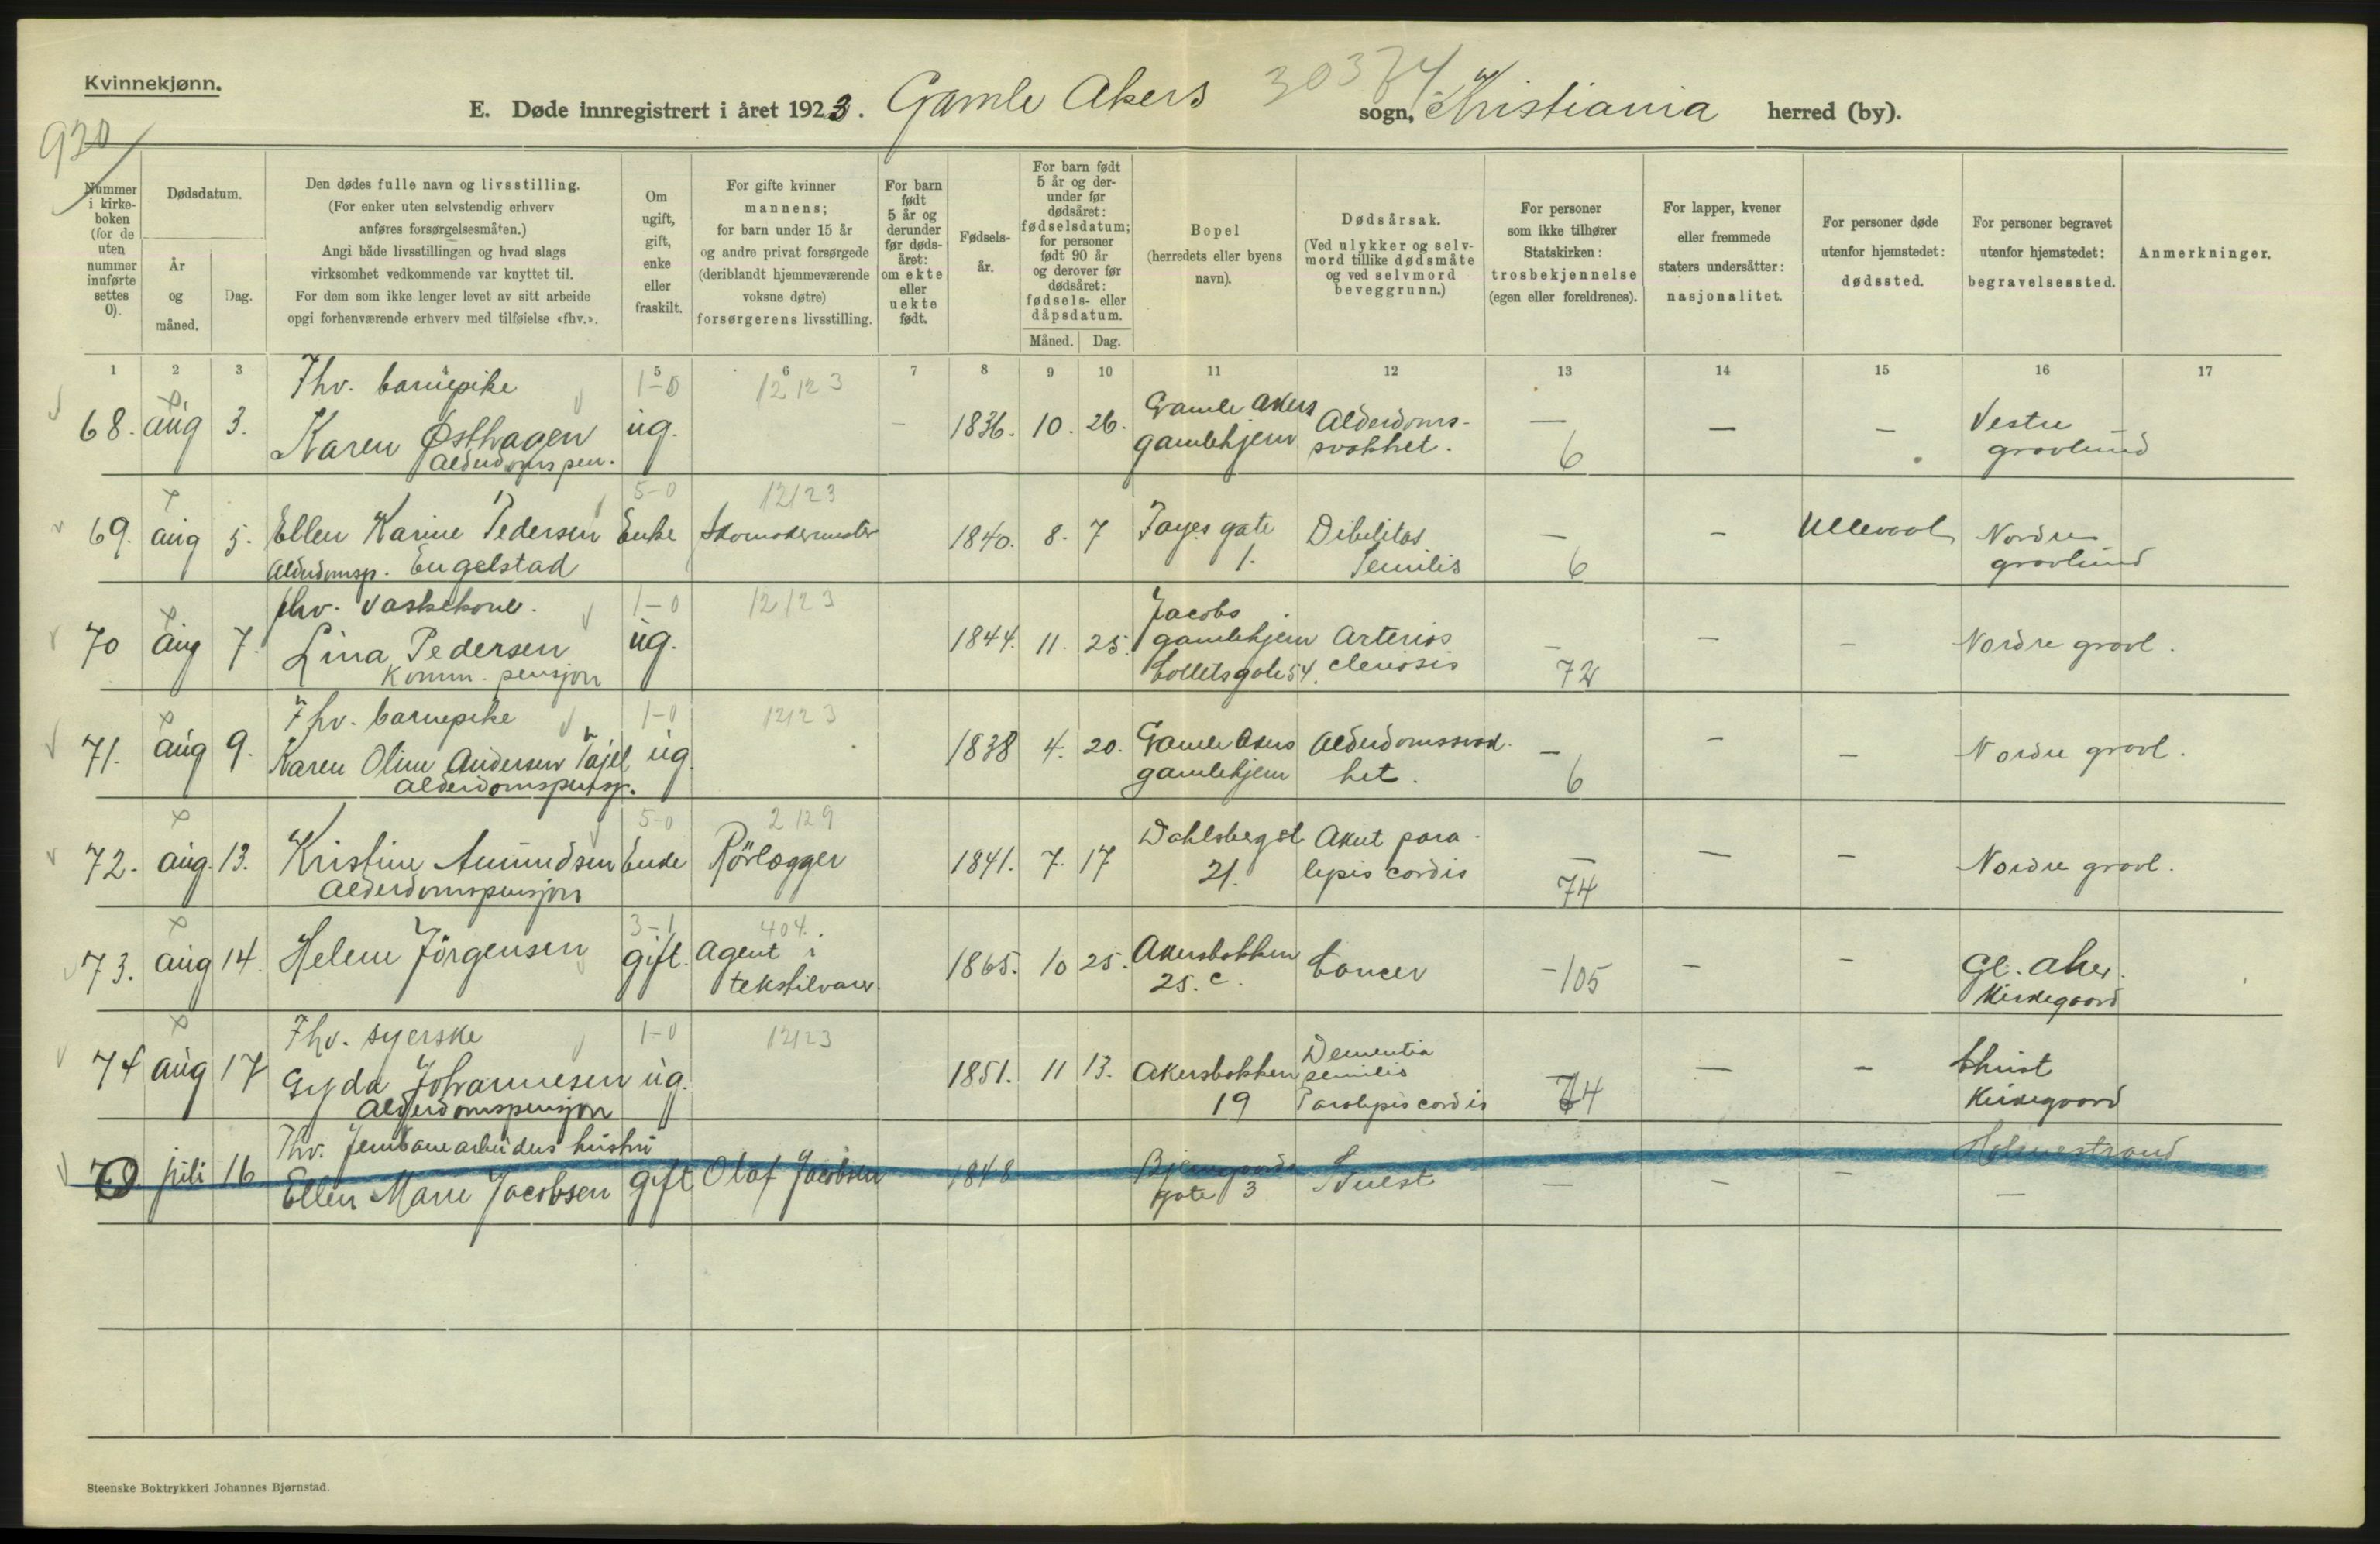 Kvinnekjønn.
E. Døde innregistrert i året 1923. Gamle Akers sogn, Kristiania herred (by).
30374
920
Nummer i kirke-boken (for de uten nummer innførte settes 0).
Dødsdatum.
År og måned.
Dag.
Den dødes fulle navn og livsstilling.
(For enker uten selvstendig erhverv
anføres forsørgelsesmåten.)
Angi både livsstillingen og hvad slags
virksomhet vedkommende var knyttet til.
For dem som ikke lenger levet av sitt arbeide
opgi forhenværende erhverv med tilføielse «fhv.».
Om ugift, gift, enke eller fraskilt.
For gifte kvinner
mannens;
for barn under 15 år
og andre privat forsørgede
(deriblandt hjemmeværende
voksne døtre)
forsørgerens livsstilling.
For barn født 5 år og derunder før døds-året: om ekte eller uekte født.
Fødsels-år.
For barn født 5 år og der-under før dødsåret: fødselsdatum; for personer født 90 år og derover før dødsåret: fødsels- eller dåpsdatum.
Måned. Dag.
Bopel
(herredets eller byens
navn).
Dødsårsak.
(Ved ulykker og selv-
mord tillike dødsmåte
og ved selvmord
beveggrunn.)
For personer
som ikke tilhører
Statskirken:
trosbekjennelse
(egen eller foreldrenes).
For lapper, kvener
eller fremmede
staters undersåtter:
nasjonalitet.
For personer døde
utenfor hjemstedet:
dødssted.
For personer begravet
utenfor hjemstedet:
begravelsessted.
Anmerkninger.
1 2 3 4 5 6 7 8 9 10 11 12 13 14 15 16 17
Fhv. barnepike 1-0 12123
68. aug 3. Karen Østhagen ug. - 1836. 10. 26. Gamle Akers gamlehjem Alderdoms-svakhet. — 6 — — Vestre gravlund
Alderdoms pen.
5-0 12123
69. aug 5. Ellen Karine Pedersen Enke Skomakermester 1840. 8. 7 Fayes gate 1. Dibilitas Senilis — 6 — Ullevaal Nordre gravlund
Alderdomsp. Engelstad
fhv. Vaskekone. 1-0 12123
70 aug 7. Lina Pedersen ug. 1844. 11. 25. Jacobs gamlehjem Colletsgate 54. Arterios clerosis — 72 — — Nordre gravl.
Komm. pensjon
Fhv. barnepike 1-0 12123
71. aug 9. Karen Oline Andersen Tajel ug. 1838 4. 20. Gamle Akers gamlehjem Alderdomssvak-het. — 6 — — Nordre gravl.
Alderdomspensj.
5-0 2129
72. aug. 13. Kristine Amundsen Enke Rörlægger 1841. 7. 17 Dahlsbergst 21. Akut para-lysis cordis — 74 — — Nordre gravl.
Alderdomspensjon
3-1 404.
73. aug 14. Helene Jörgensen gift. Agent i tekstilvarer. 1865. 10 25. Akersbakken 25. c. Cancer — 105 — — Gl. Aker. Kirkegaard
Fhv. syerske 1-0 12123
74 aug 17 Gyda Johannesen ug. 1851. 11 13. Akersbakken 19 Dementia senilis Paralysis cordis — 74 — — Christ Kirkegaard
Alderdomspensjon
Fhv. Jernbanearbeiders hustru
0 juli 16 Ellen Marie Jacobsen gift Olaf Jacobsen 1848 Bjerregaards gate 3 — — — Holmestrand —
Steenske Boktrykkeri Johannes Bjørnstad.